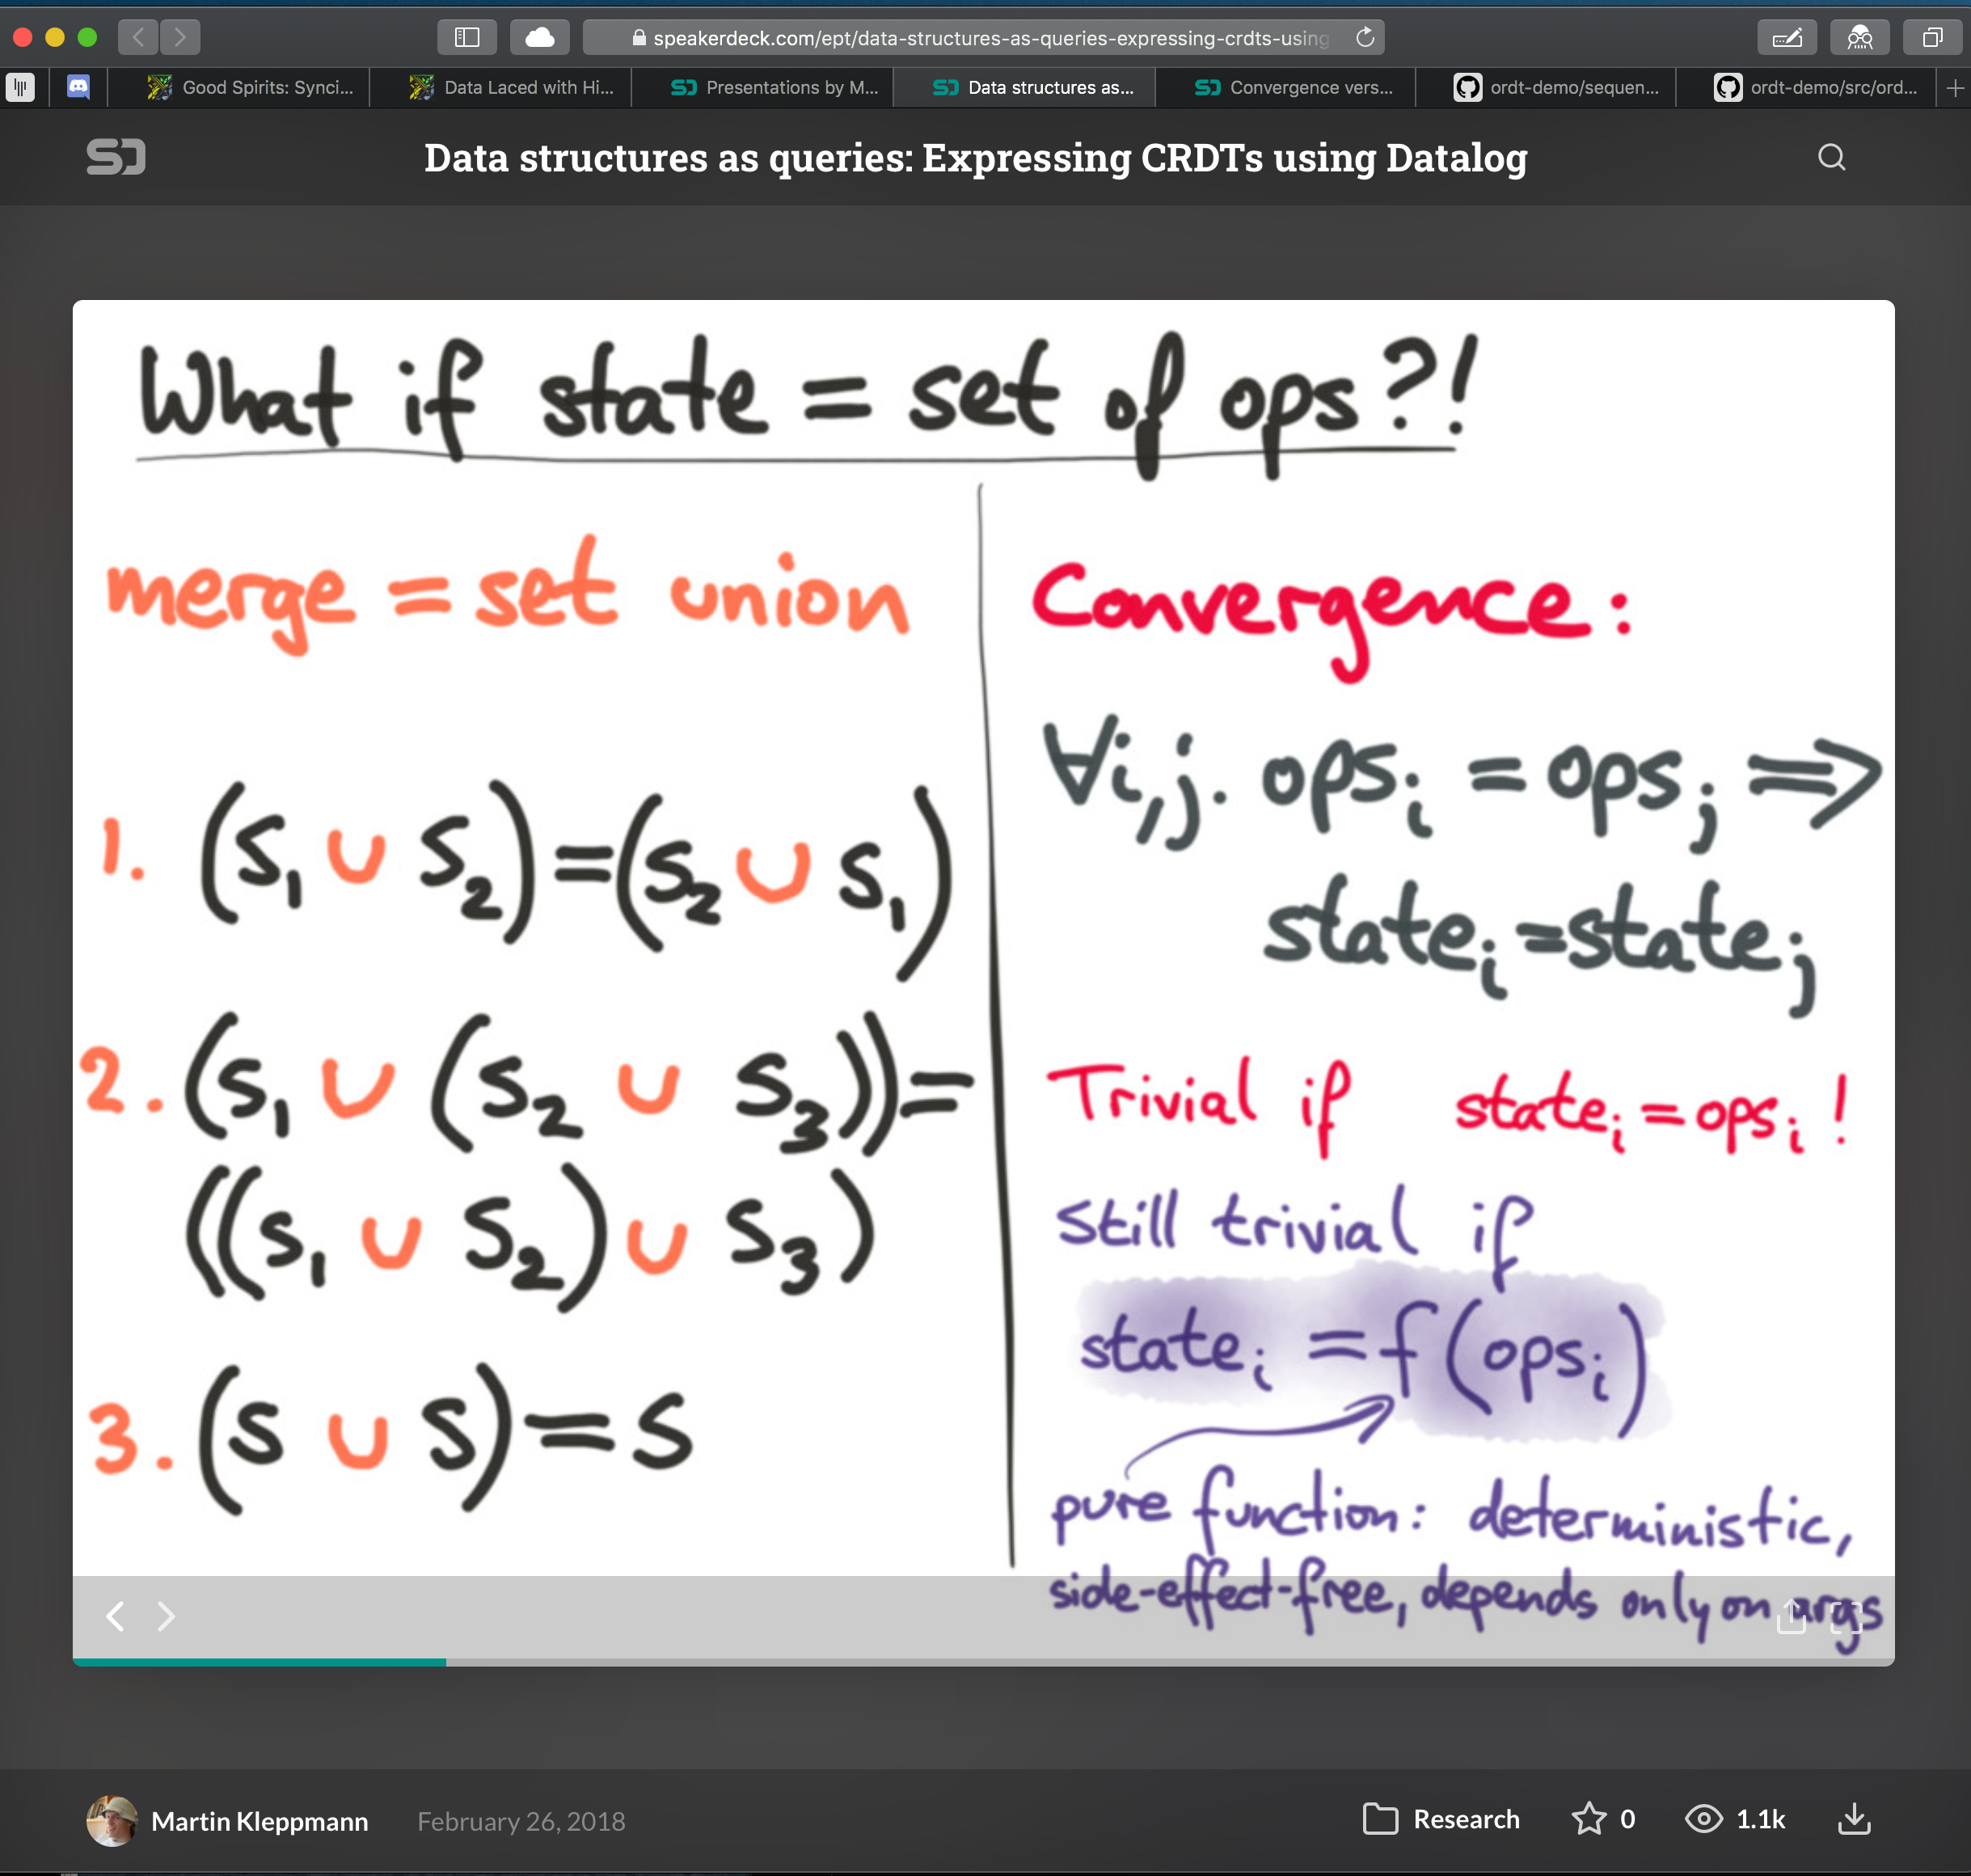 speakerdeck.com/ept/data-structures-as-queries-expressing-crdts-using
Good Spirits: Synci...
Data Laced with Hi...
Presentations by M...
Data structures as...
Convergence vers...
ordt-demo/sequen...
ordt-demo/src/ord...
Data structures as queries: Expressing CRDTs using Datalog
What if state = set of ops?!
merge = set union
1. (s₁ ∪ s₂)=(s₂ ∪ s₁)
2. (s₁ ∪ (s₂ ∪ s₃))=
((s₁ ∪ s₂) ∪ s₃)
3. (s ∪ s)=s
Convergence:
∀i,j. opsᵢ = opsⱼ ⇒
stateᵢ=stateⱼ
Trivial if stateᵢ=opsᵢ!
Still trivial if
stateᵢ =f(opsᵢ)
pure function: deterministic,
side-effect-free, depends only on args
Martin Kleppmann
February 26, 2018
Research
0
1.1k